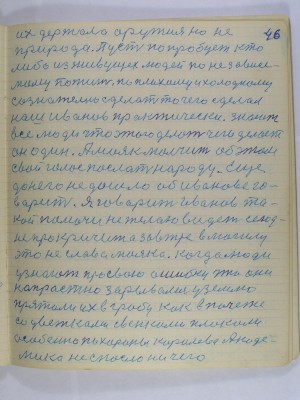 46
их держала оружия но не
природа. Пусть попробует кто
либо из живущих людей по независи-
мому пожить по плохому и холодному
сознательно сделать то чего сделал
наш Иванов практически. знают
все люди что это делает чего делает
он один. А маяк молчит об этом
свой голос послать народу. Еще
до него не дошло об Иванове го-
ворит. Я говорит Иванов та-
кой помочи не желаю видеть сегод-
не прокричит а завтре в могилу
это не слова маяка. Когда люди
узнают про свою ошибку что они
напрастно зарывали у землю
прятали их в гробу как в почете
со цветками свежими плохими
особенно похараны Королева Акаде-
мика не спасло ничего